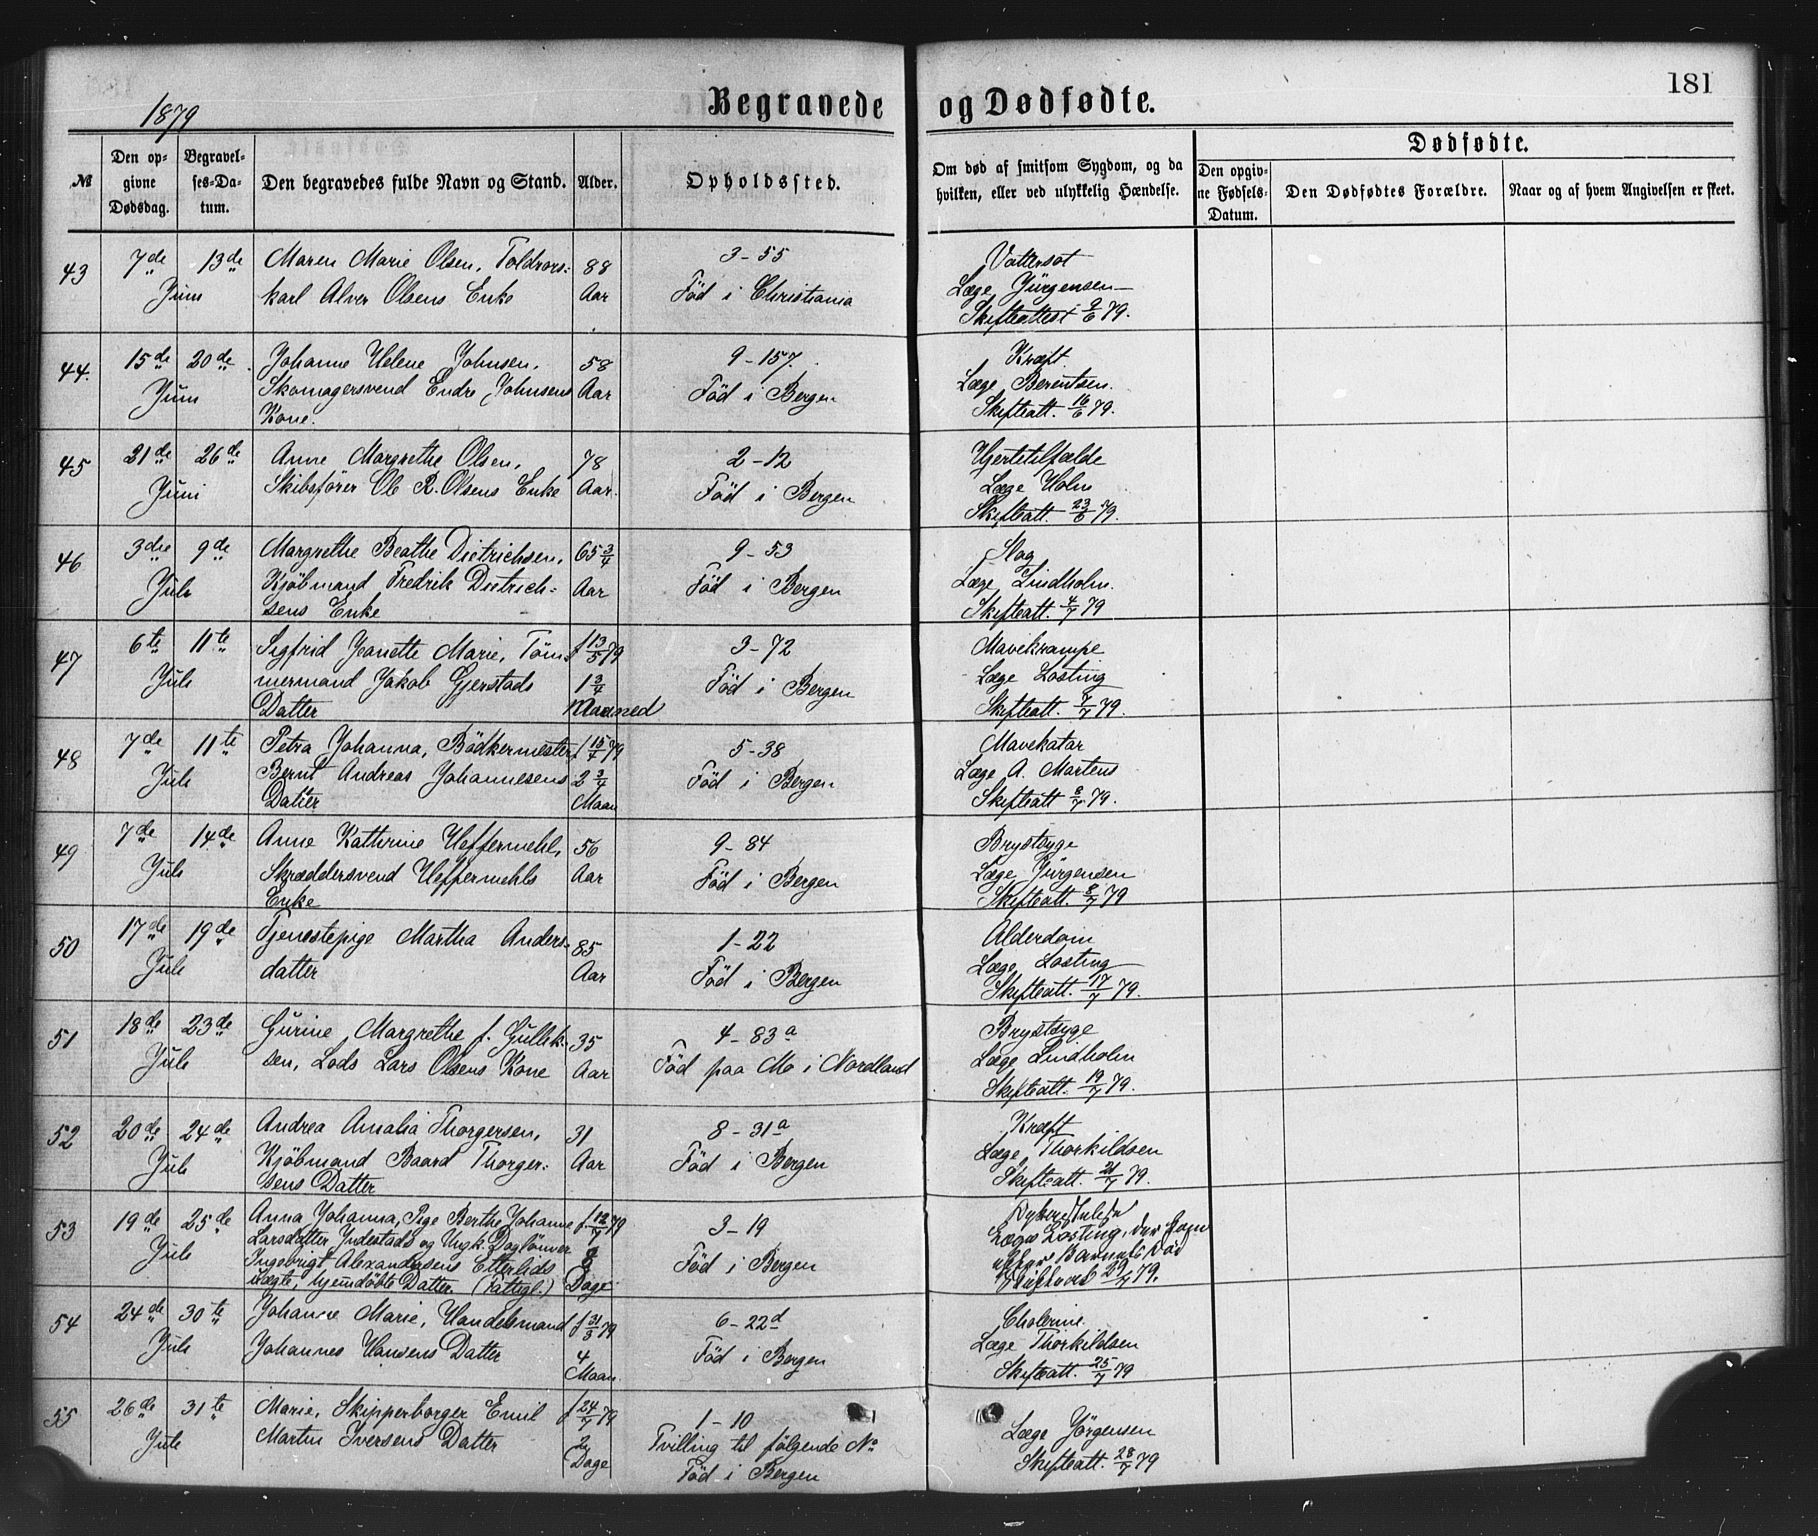 181
1879
Begravede og Dødfødte.
№
Den opgivne Dødsdag.
Begravelses-Datum.
Den begravedes fulde Navn og Stand.
Alder.
Opholdssted.
Om død af smitsom Sygdom, og da hvilken, eller ved ulykkelig Hændelse.
Dødfødte.
Den opgivne Fødsels-Datum.
Den Dødfødtes Forældre.
Naar og af hvem Angivelsen er skeet.
43 7de 13de Maren Marie Olsen, Toldrors- 88 3-55 Vattersot
Juni karl Alver Olsens Enke Aar Född i Christiania Læge Jürgensen
Skifteattest 9/6 79.
44. 15de 20de Johanne Helene Johnsen, 58 9-157. Kræft
Juni Skomagersvend Endre Johnsens Aar Föd i Bergen Læge Berentsen.
Kone. Skifteatt. 16/6 79.
45 21de 26de Anne Margrethe Olsen, 78 2-12 Hjertetilfælde
Juni Skibsfører Ole R. Olsens Enke Aar. Föd i Bergen Læge Holm
Skifteatt. 23/6 79.
46 3die 9de Margrethe Beathe Dietrichsen, 65 3/4 9-53 Slag
Juli Kjöbmand Fredrik Dietrich- Aar Föd i Bergen Læge Lindholm.
sens Enke Skifteatt. 4/7 79
47 6te 11te Sigfrid Jeanette Marie, Töm- f 13/5 79 3-72 Mavekrampe
Juli mermand Jakob Gjerstads 1 3/4 Föd i Bergen Læge Losting
Datter Maaned Skifteatt. 7/7 79.
48 7de 11te Petra Johanna, Bödkermester f 15/4 79 5-38 Mavekatar
Juli Bernt Andreas Johannesens 2 3/4 Föd i Bergen Læge A. Martens
Datter Maan Skifteatt 8/7 79.
49 7de 14de Anne Kathrine Heffermehl, 56 9-84 Brystsyge
Juli Skræddersvend Heffermehls Aar Föd i Bergen Læge Jürgensen
Enke Skifteatt. 8/7 79
50 17de 19de Tjenestepige Martha Anders- 85 1-22 Alderdom
Juli datter Aar Föd i Bergen Læge Losting
Skifteatt. 17/7 79.
51 18de 23de Gurine Margrethe f. Gullik- 35 4-83a Brystsyge
Juli sen, Lods Lars Olsens Kone Aar Föd paa Mo i Nordland Læge Lindholm
Skifteatt. 19/7 79.
52 20de 24de Andrea Amalia Thorgersen, 31 8-31a Kræft
Juli Kjöbmand Baard Thorger- Aar Föd i Bergen Læge Thorkildsen
sens Datter Skifteatt. 21/7 79.
53 19de 25de Anna Johanna, Pige Berthe Johanne f. 12/7 79 3-19
Juli Larsdatter Indestads og Ungk. Daglönner Föd i Bergen Læge Losting, der
Ingebrigt Alexandersens Etterlids 8 Barnets Död
uægte, hjemdöbte Datter. (Fattigl.) Dage 29/7 79.
54 24de 30te Johanne Marie, Handelsmand f 31/3 79 6-22d Cholerine.
Juli Johannes Hansens Datter 4 Föd i Bergen Læge Thorkildsen
Maan Skifteatt. 25/7 79
55 26de 31te Marie, Skipperborger Emil f 24/7 79 1-10 Læge Jörgensen
Juli Martin Iversens Datter 2 Tvilling til fölgende No Skifteatt. 28/7 79
Dage Föd i Bergen